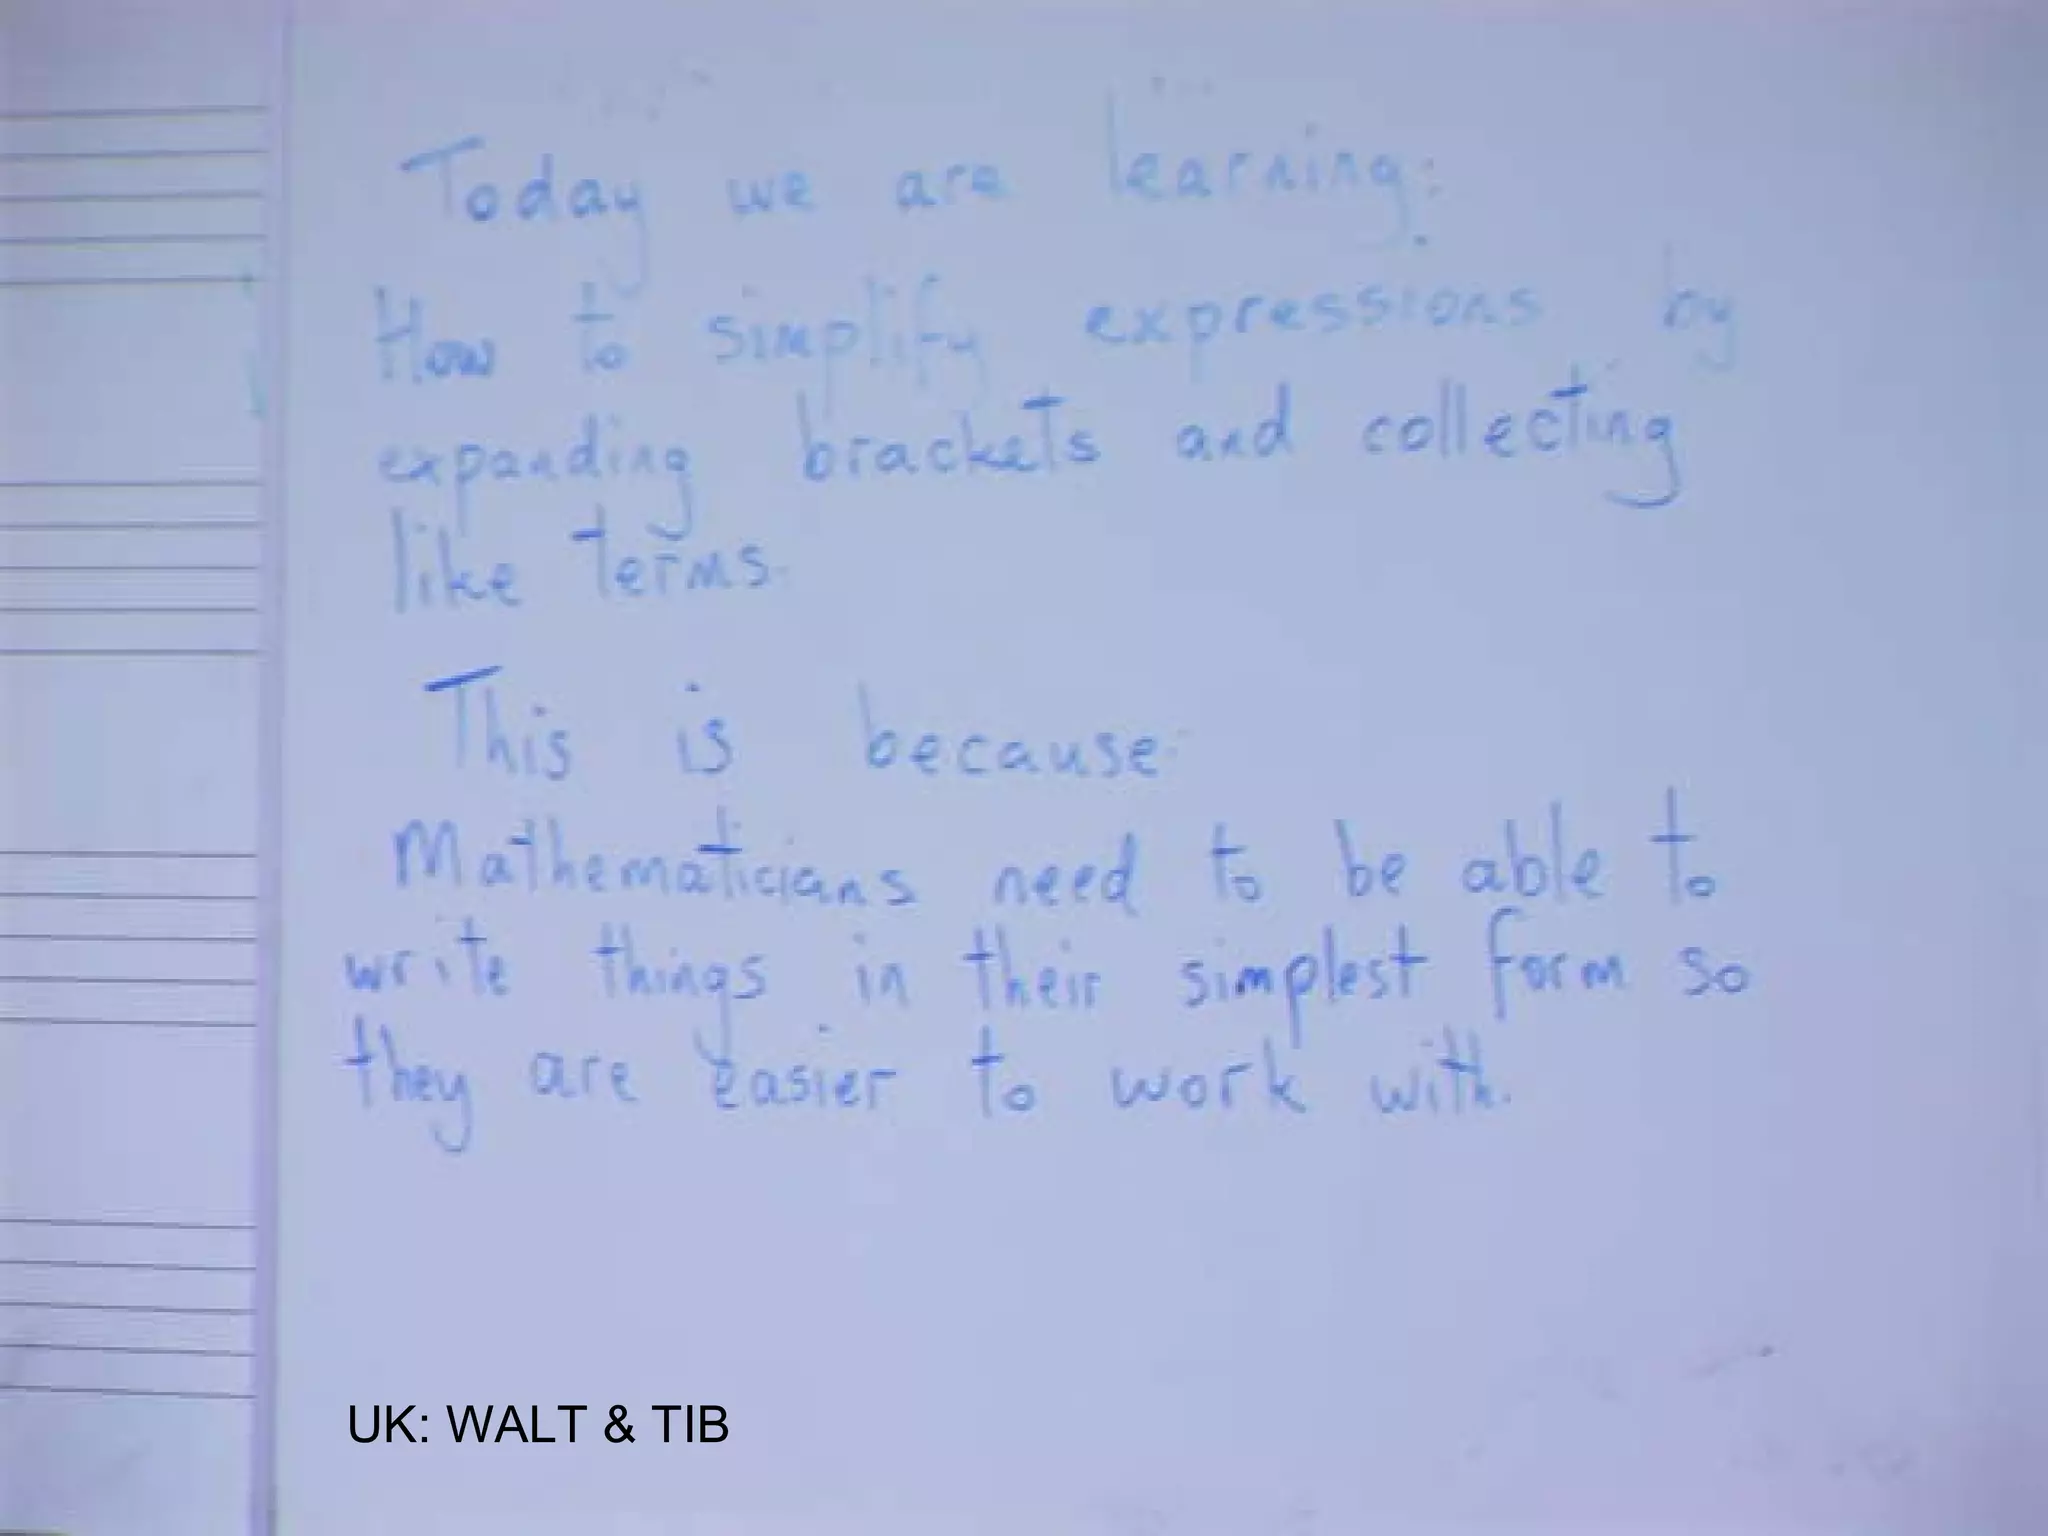 Today we are learning:
How to simplify expressions by
expanding brackets and collecting
like terms.
This is because:
Mathematicians need to be able to
write things in their simplest form so
they are easier to work with.
UK: WALT & TIB